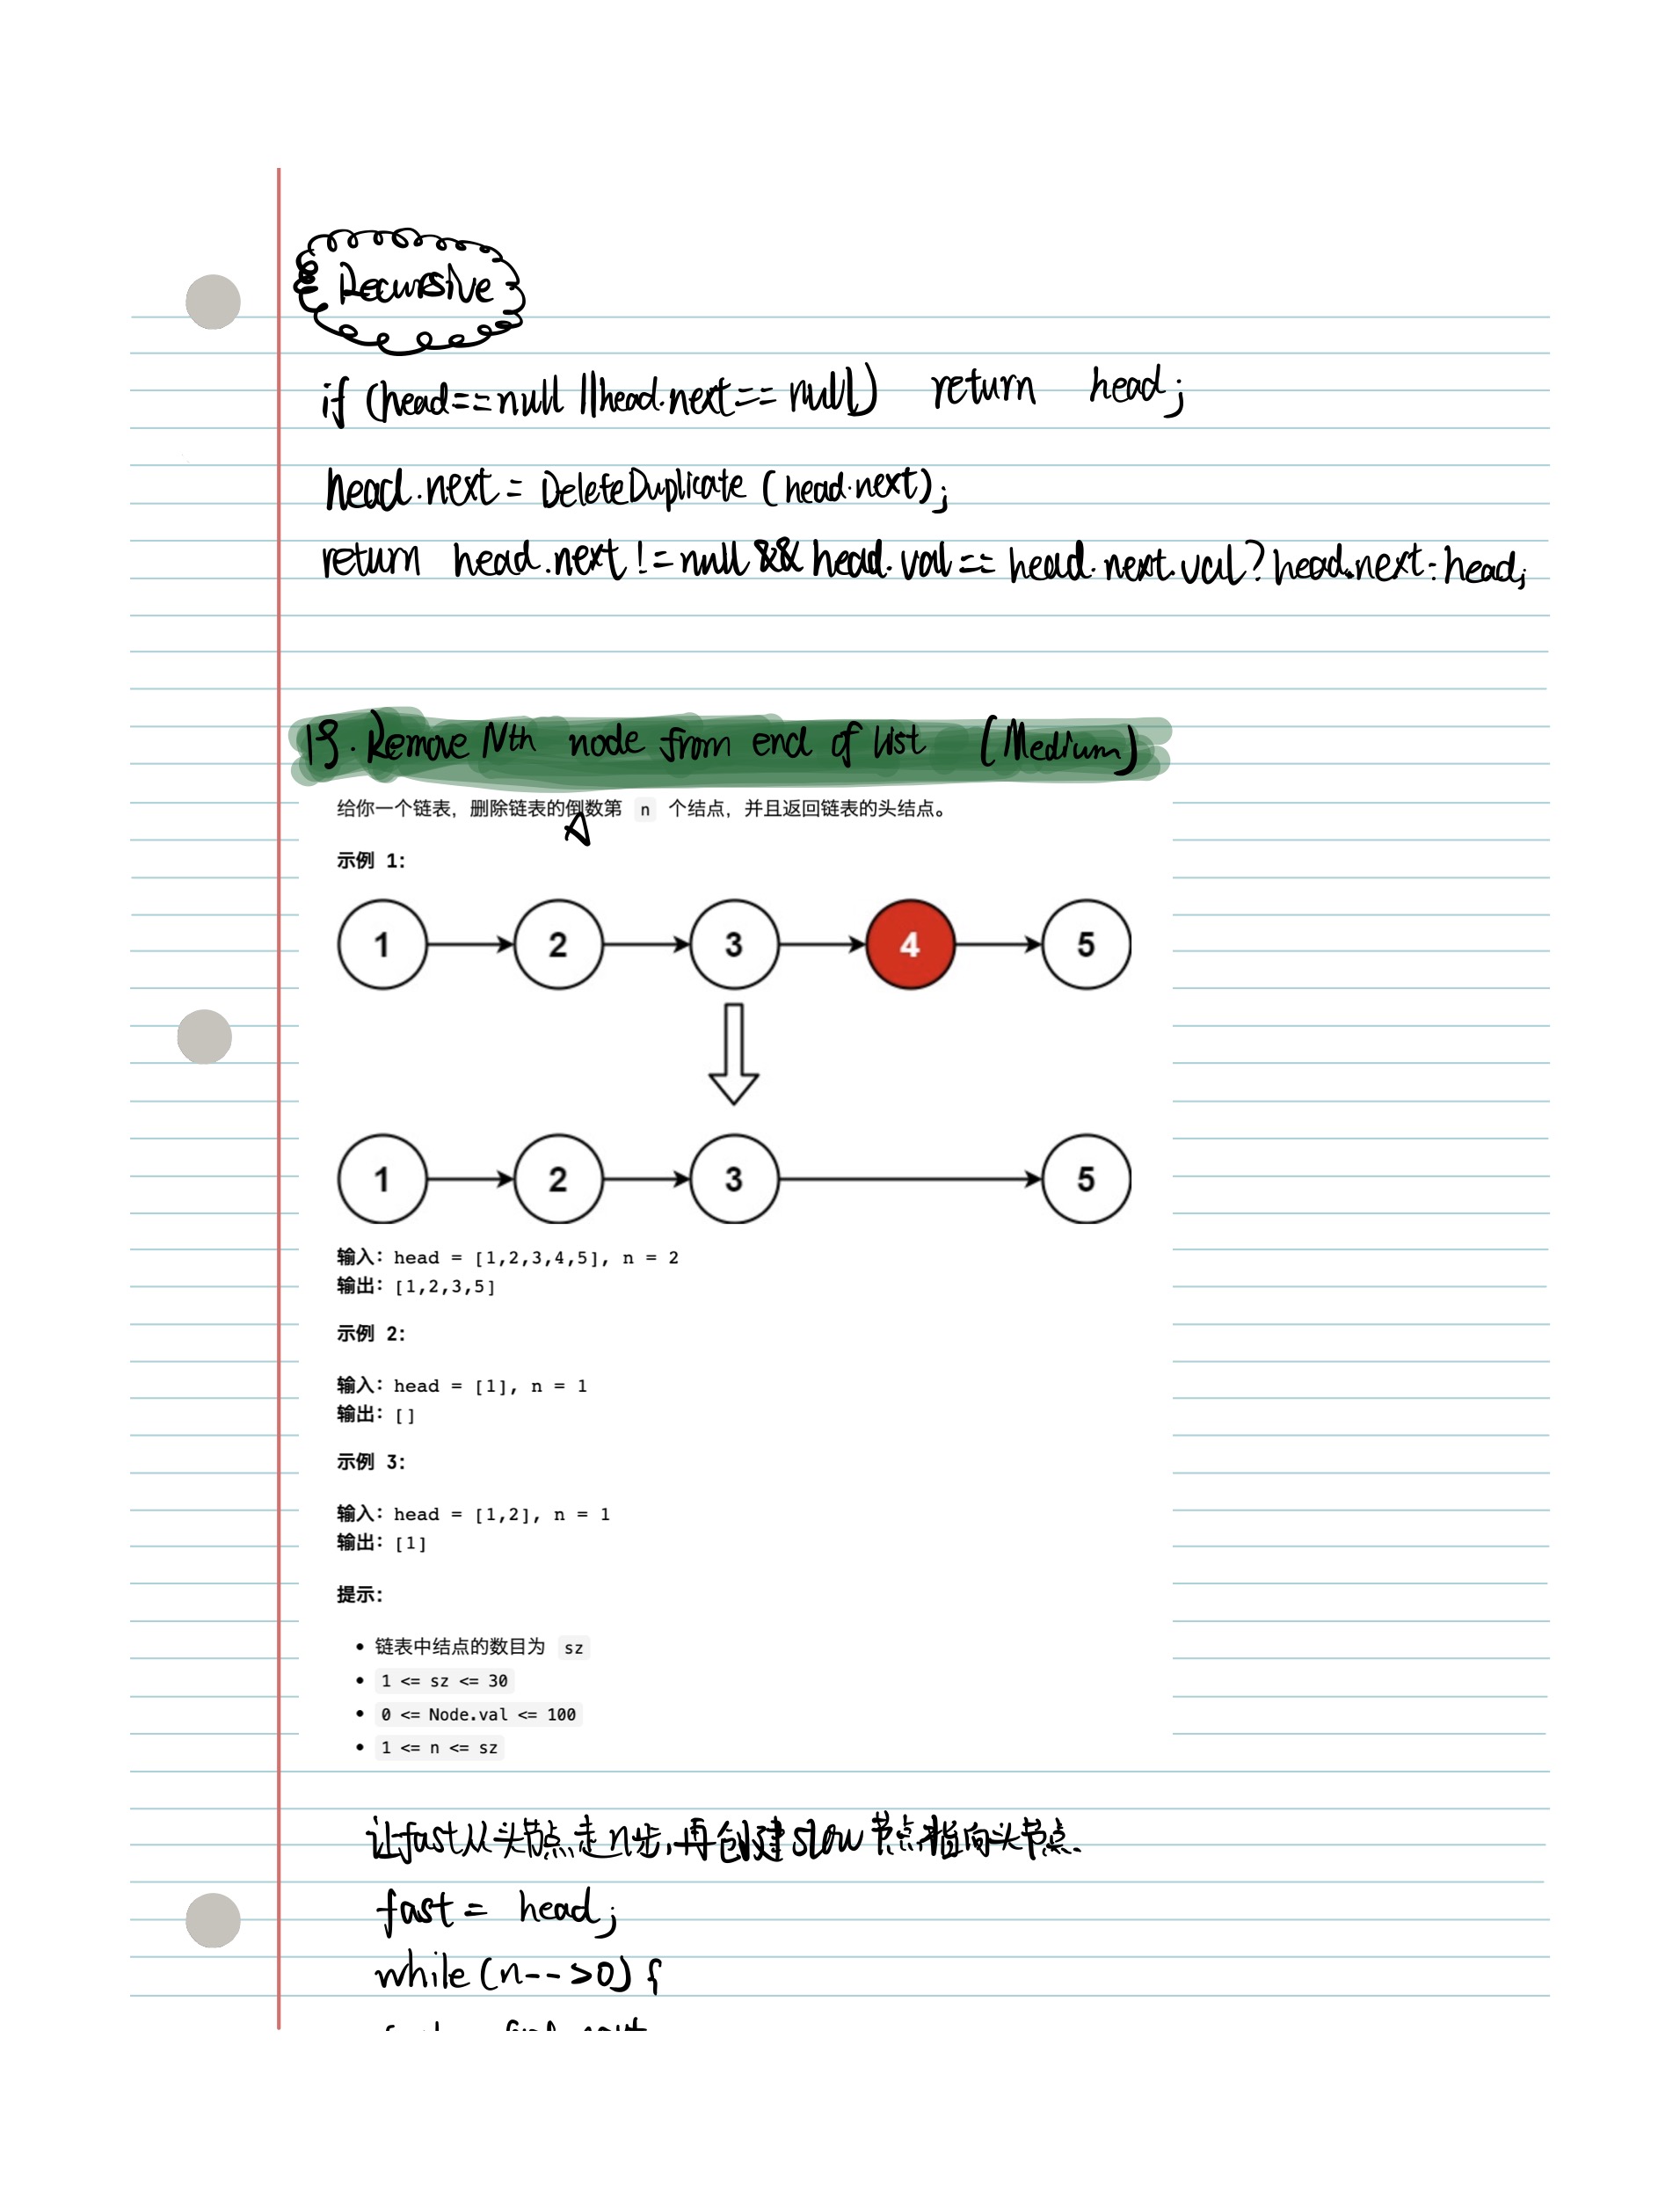 Recursive
if (head==null ||head.next==null) return head;
head.next = DeleteDuplicate (head.next);
return head.next!=null && head.val == head.next.val? head.next:head;
19. Remove Nth node from end of list (Medium)
给你一个链表，删除链表的倒数第 n 个结点，并且返回链表的头结点。
示例 1：
1 2 3 4 5
1 2 3 5
输入：head = [1,2,3,4,5], n = 2
输出：[1,2,3,5]
示例 2：
输入：head = [1], n = 1
输出：[]
示例 3：
输入：head = [1,2], n = 1
输出：[1]
提示：
• 链表中结点的数目为 sz
• 1 <= sz <= 30
• 0 <= Node.val <= 100
• 1 <= n <= sz
让fast从头节点走n步,再创建slow节点指向头节点.
fast = head;
while (n-- >0) {